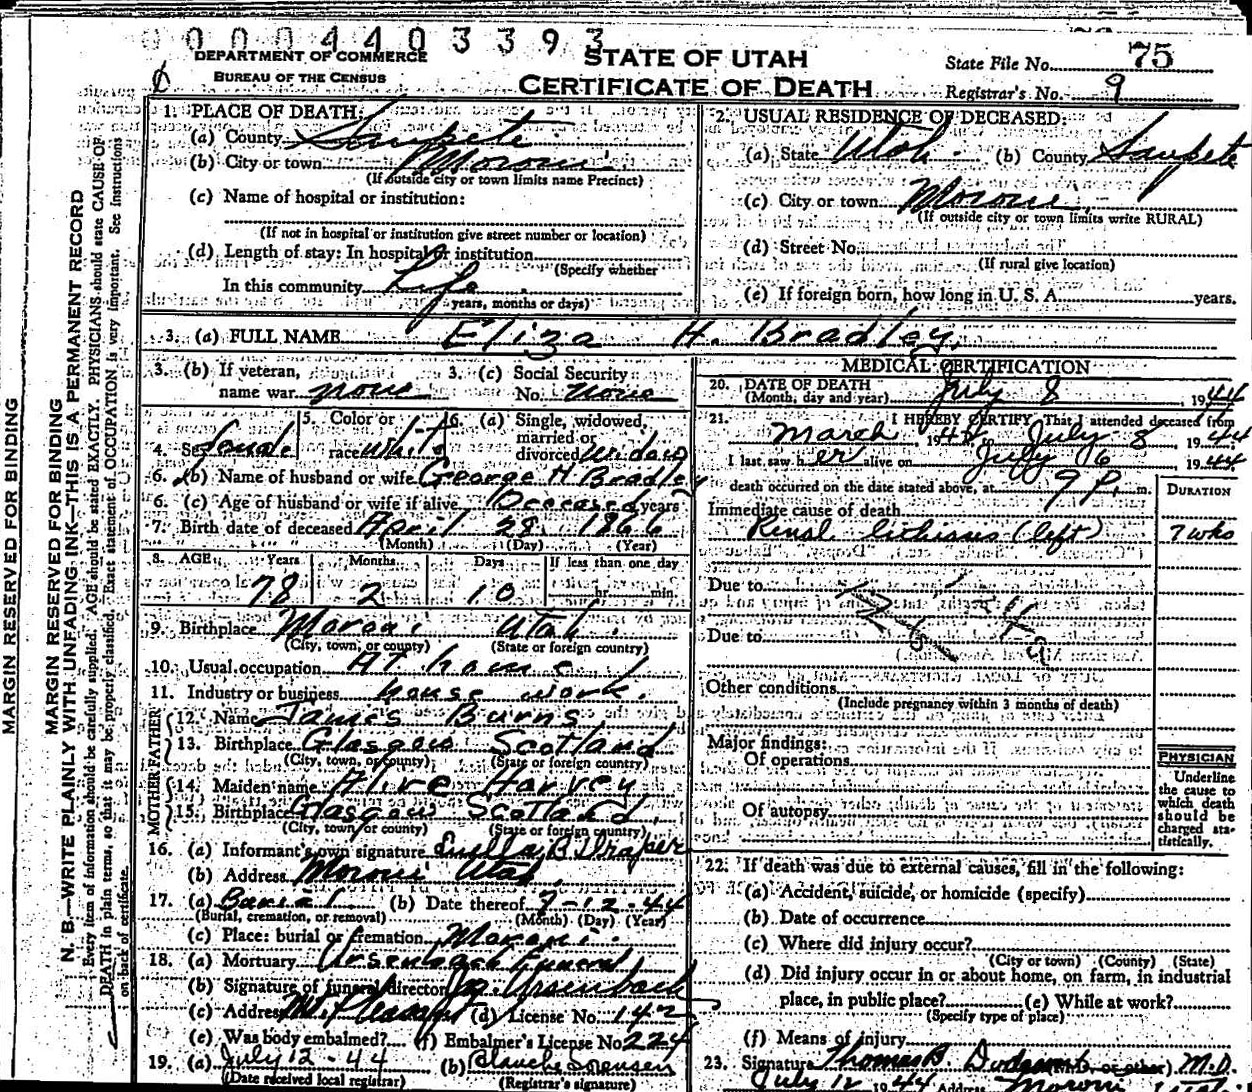 0 0 0 0 4 4 0 3 3 9 3
DEPARTMENT OF COMMERCE
BUREAU OF THE CENSUS
STATE OF UTAH
CERTIFICATE OF DEATH
State File No. 75
Registrar's No. 9
MARGIN RESERVED FOR BINDING
MARGIN RESERVED FOR BINDING
N. B.—WRITE PLAINLY WITH UNFADING INK—THIS IS A PERMANENT RECORD
Every item of information should be carefully supplied. AGE should be stated EXACTLY. PHYSICIANS should state CAUSE OF
DEATH in plain terms, so that it may be properly classified. Exact statement of OCCUPATION is very important. See Instructions
on back of certificate.
1. PLACE OF DEATH:
(a) County Sanpete
(b) City or town Moroni
(If outside city or town limits name Precinct)
(c) Name of hospital or institution:
(If not in hospital or institution give street number or location)
(d) Length of stay: In hospital or institution
(Specify whether
In this community Life
years, months or days)
2. USUAL RESIDENCE OF DECEASED:
(a) State Utah (b) County Sanpete
(c) City or town Moroni
(If outside city or town limits write RURAL)
(d) Street No.
(If rural give location)
(e) If foreign born, how long in U. S. A. years.
3. (a) FULL NAME Eliza H. Bradley
3. (b) If veteran, name war none
3. (c) Social Security No. None
4. Sex female
5. Color or race white
6. (a) Single, widowed, married or divorced Widow
6. (b) Name of husband or wife George H Bradley
6. (c) Age of husband or wife if alive Deceased years
7. Birth date of deceased April 28 1866
(Month) (Day) (Year)
8. AGE Years Months Days If less than one day
78 2 10 hr. min.
9. Birthplace Moroni Utah
(City, town, or county) (State or foreign country)
10. Usual occupation At home
11. Industry or business house work.
FATHER
12. Name James Burns
13. Birthplace Glasgow Scotland
(City, town, or county) (State or foreign country)
MOTHER
14. Maiden name Alice Harvey
15. Birthplace Glasgow Scotland
(City, town or county) (State or foreign country)
16. (a) Informant's own signature B Draper
(b) Address Moroni Utah
17. (a) Burial (b) Date thereof 7-12-44
(Burial, cremation, or removal) (Month) (Day) (Year)
(c) Place: burial or cremation Moroni
18. (a) Mortuary Ursenbach Funeral
(b) Signature of funeral director Ursenbach
(c) Address Mt. Pleasant (d) License No. 142
(e) Was body embalmed? (f) Embalmer's License No. 224
19. (a) July 12-44 (b) Blanche Sorensen
(Date received local registrar) (Registrar's signature)
MEDICAL CERTIFICATION
20. DATE OF DEATH
(Month, day and year) July 8, 1944
21. I HEREBY CERTIFY, That I attended deceased from
March 1944 to July 8 1944
I last saw her alive on July 6 1944
death occurred on the date stated above, at 9 P. m.
DURATION
Immediate cause of death
Renal lithiasis (left) 7 wks
Due to
Due to
Other conditions
(Include pregnancy within 3 months of death)
Major findings:
Of operations
Of autopsy
PHYSICIAN
Underline
the cause to
which death
should be
charged sta-
tistically.
22. If death was due to external causes, fill in the following:
(a) Accident, suicide, or homicide (specify)
(b) Date of occurrence
(c) Where did injury occur?
(City or town) (County) (State)
(d) Did injury occur in or about home, on farm, in industrial
place, in public place? (e) While at work?
(Specify type of place)
(f) Means of injury
23. Signature Thomas B (M.D. or other) M.D.
July 12 1944 Address Moroni